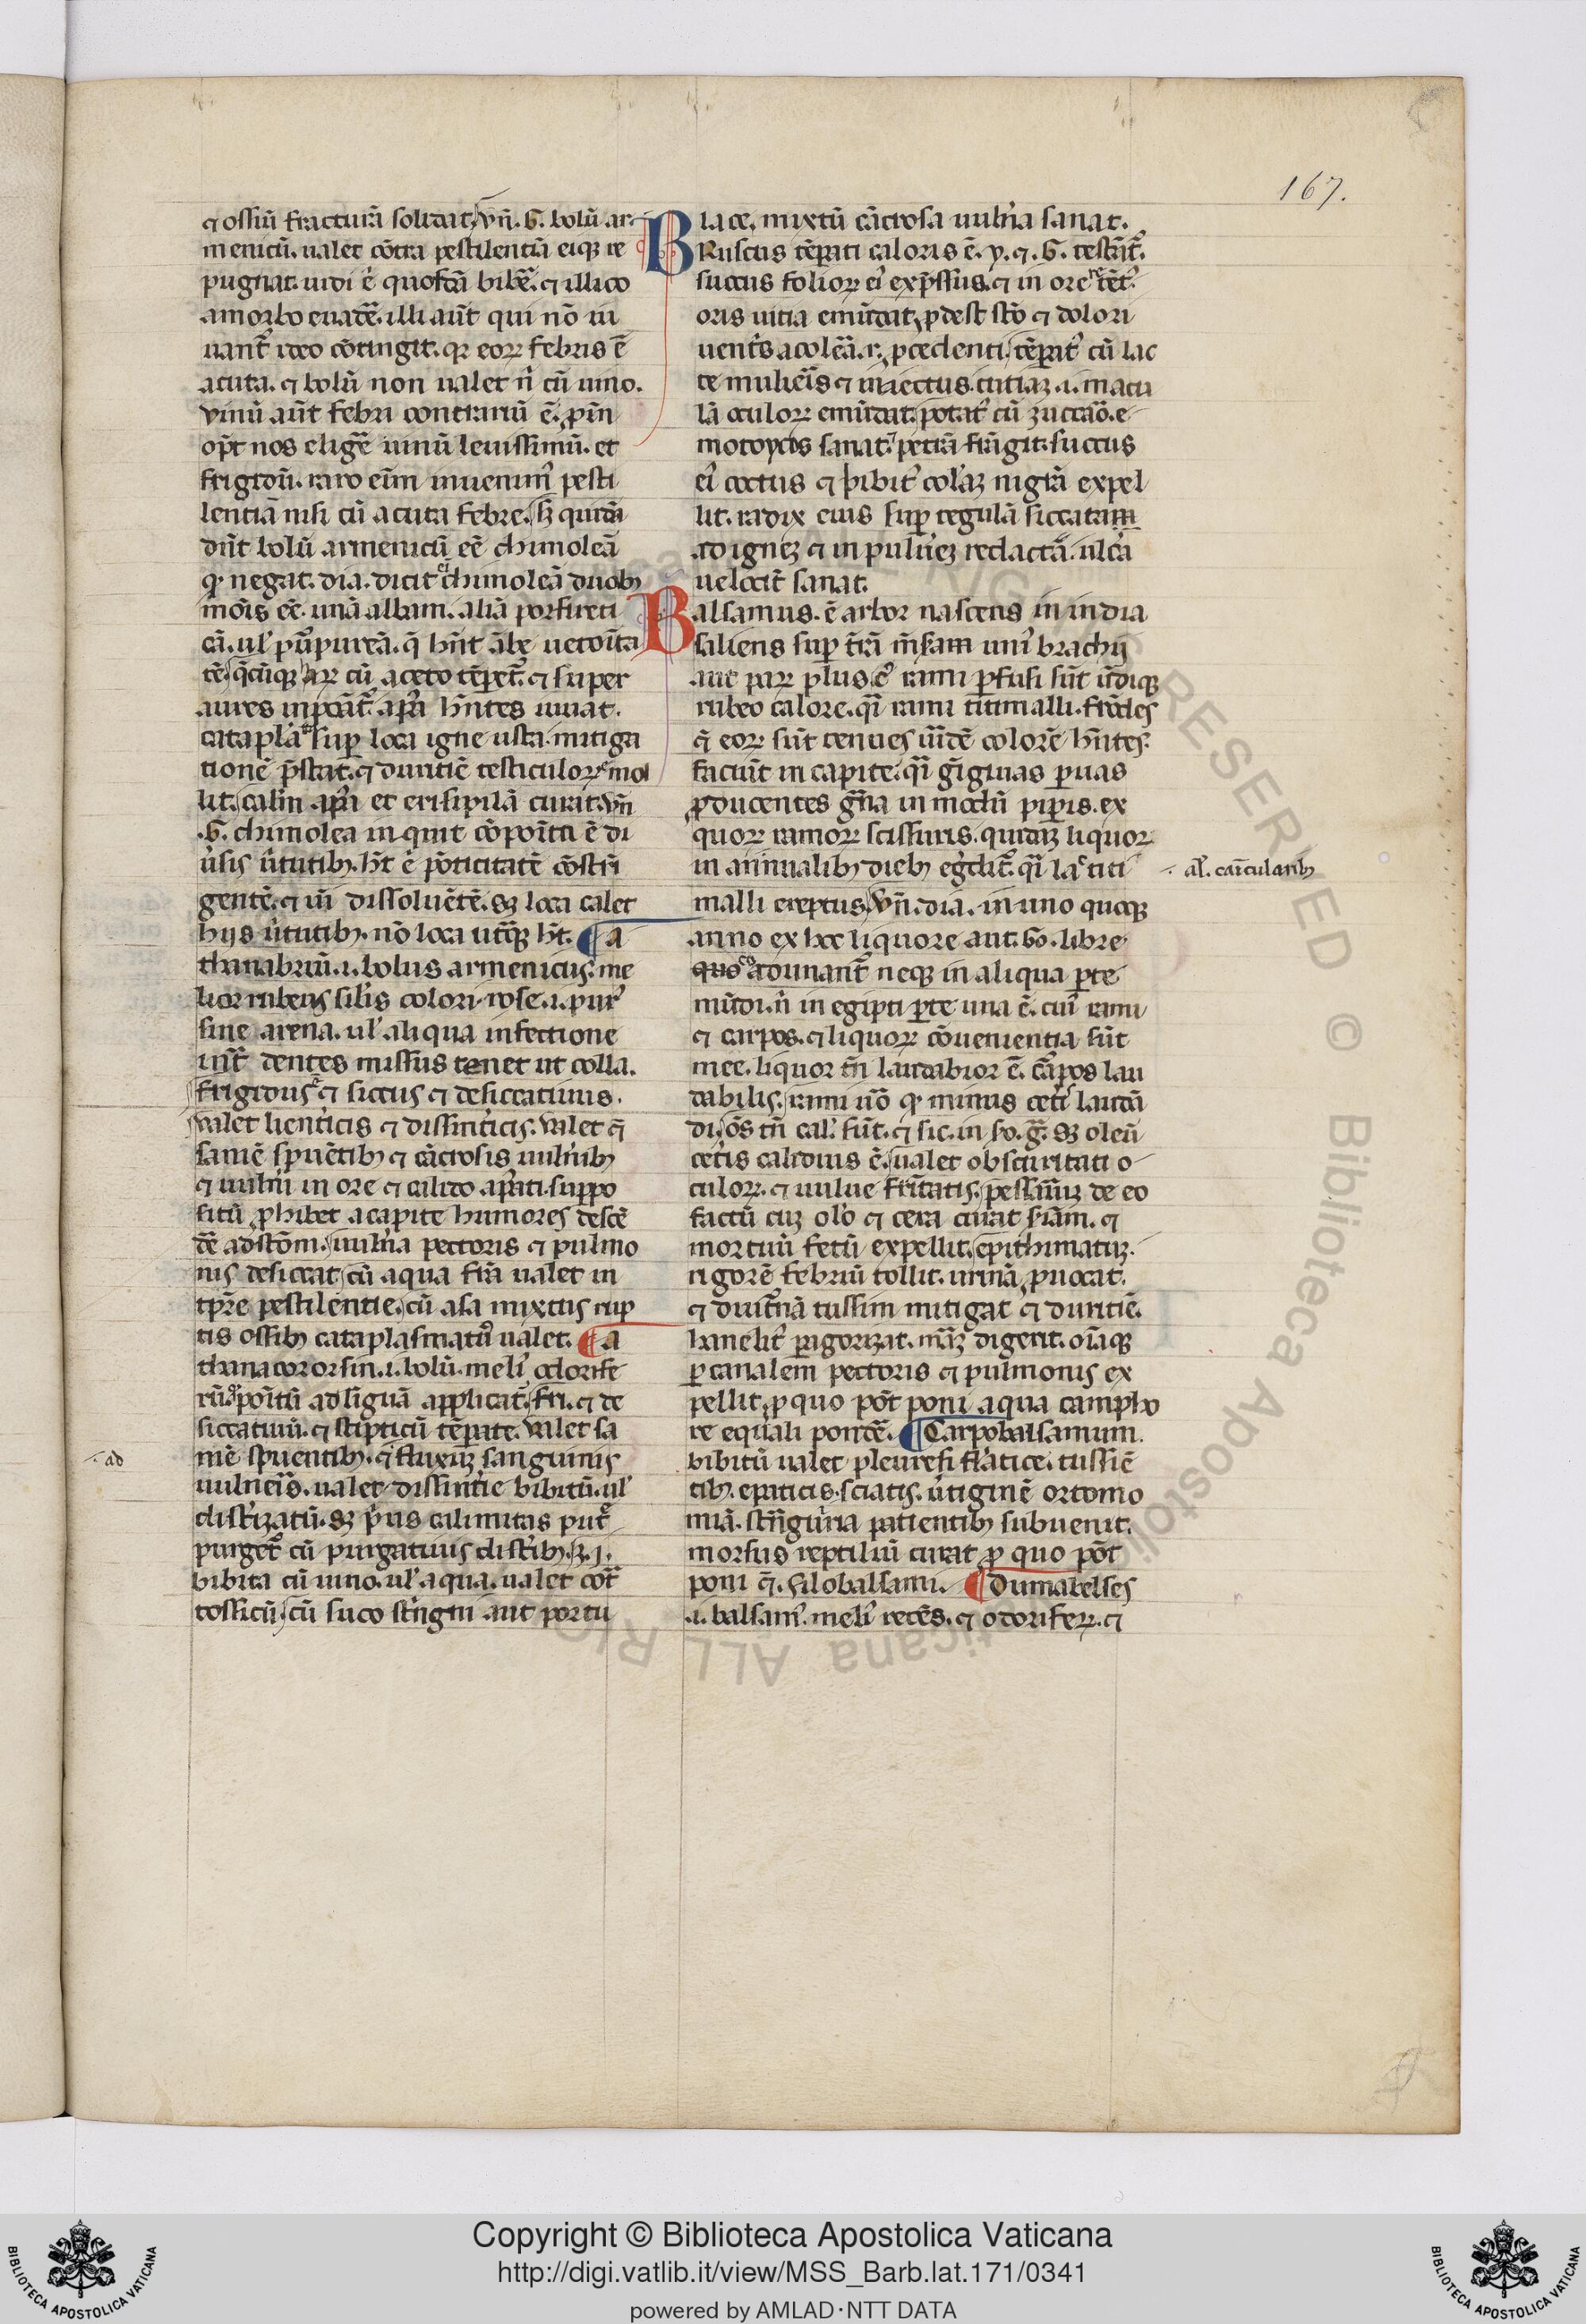 167.
⁊ ossiũ fracturã solidat. vñ. G. bolũ ar-
meniciũ. ualet cõtra pestilentiã eiqꝫ re
pugnat. uidi .n. quosdã bibẽ. ⁊ illico
a morbo euadẽ. illi aũt qui nõ iu
uant᷑ ideo cõtingit. qꝛ eoꝝ febris ẽ
acuta. ⁊ bolũ non ualet nͥ cũ uino.
vinũ aũt febri contrariũ ẽ.
op̃t nos eligẽ uinũ leuissimũ. et
frigidũ. raro eĩm inuenimꝰ pesti
lentiã nisi cũ acuta febre. sꝫ quidã
dñt bolũ armenicũ eẽ chimoleã
negat. dia. dicit ei chimoleã duobꝫ
mõis eẽ. unã albam. aliã porfireti
cã. ul' pũpureã. hñt
cũ aceto tẽpet᷑. ⁊ super
aures hñtes iuuat.
catapla sup loca igne usta. mitiga
tionẽ p̃stat. ⁊ duritiẽ testiculoꝝ mol
lit. et erisipilã curat. vñ
.G. chimolea inquit cõpoĩta ẽ di
uͥsis uͥtutibꝫ. hꝫ põticitatẽ cõstrĩ
gentẽ. ⁊ dissoluẽtẽ. sꝫ loca calet
hijs uͥtutibꝫ. nõ loca hꝫ. ¶ A
thinabriũ .i. bolus armenicus. me
lior rubens silis colori rose .i. purꝰ
sine arena. ul' aliqua infectione
int᷑ dentes missus tenet ut colla.
frigidus ẽ ⁊ siccus ⁊ desiccatiuus.
valet lientͥcis ⁊ dissintͥcis. valet
saniẽ spuẽtibꝫ ⁊ cãcrosis uulnͥibꝫ
⁊ uulnͥi in ore ⁊ calido apͣti. suppo
sitũ ꝓhibet a capite humores descẽ
dẽ ad stõm. uulnͥa pectoris ⁊ pulmo
nis desiccat. cũ aqua fría ualet in
tp̃re pestilentie. cũ asa mixtus rup
tis ossibꝫ cataplasmatũ ualet. ¶ A
thinacororsin .i. bolũ. melꝰ odorife
rũ. poĩtũ ad liguã applicat᷑. fri. ⁊ de
siccatiuũ. ⁊ stipticũ tẽpate. valet sa
niẽ spuentibꝫ. fluxũ sanguinis
.·. ad
uulneris. ualet dissintͥie bibitũ. ul'
clistͥizatũ. sꝫ pͥus calimitas put᷑
purget᷑ cũ purgatiuis clistͥibꝫ. .j.
bibita cũ uino. ul' aqua. ualet cõt᷑
tossicũ. cũ suco stͥigni aut portu
lace, mixtũ cãcrosa uulnͥa sanat.
BRuscus tẽpati caloris ẽ. y. ⁊. G. testãt᷑.
succus folioꝝ eiꝰ exp̃ssus. ⁊ in ore retẽt᷑
oris uitia emũdat. ꝓdest stõ ⁊ dolori
uentͥs a colẽa. r. ꝓcedenti. tẽpatꝰ cũ lac
te mulieris ⁊ iniectus. .i. macu
lã oculoꝝ emũdat. potatꝰ cũ zuccao. e-
motoycos sanat. petrã frãgit. succus
eiꝰ coctus ⁊ bibitꝰ colaꝫ nigrã expel
lit. radix eius sup tegulã siccatam
ad ignẽ ⁊ in puluẽ redactã. ulcͥa
uelocit᷑ sanat.
Balsamus. ẽ arbor nascens in india
saliens sup tͥrã mͥsam uniꝰ brachij
aut paꝝ plus. eꝰ rami pfusi sũt ũdiqꝫ
rubeo calore. qͥ rami titimalli. frõdes
eoꝝ sũt tenues uͥidẽ colorẽ hñtes.
faciũt in capite. qͥ gͥiginas puas
ꝓducentes gͥna in modũ pipis. ex
quoꝝ ramoꝝ scissuris. quidaꝫ liquor
in aĩnualibꝫ diebꝫ egͥdit᷑. qͥ lac titi
.·. al'. caĩcularibꝫ
malli ereptus. vñ. dia. in uno quoqꝫ
anno ex hoc liquore aut. 60. libre
adunant᷑ neqꝫ in aliqua pte
mũdi. nͥ in egipti pte una ẽ. cuiꝰ rami
⁊ carpos. ⁊ liquoꝝ cõuenientia sũt
mee. liquor tñ laudabior ẽ. cãpos lau
dabilis. rami uͦo minus cetͥs laudã
di. oẽs tñ cal'. sũt. ⁊ sic. in so. gͣ. sꝫ oleũ
cetͥis calidius ẽ. ualet obscuritati o-
culoꝝ. ⁊ uulue fritatis. pessariũ de eo
factũ cuꝫ olͦo ⁊ cera curat
mortuũ fetũ expellit. epithimatiꝫ.
rigorẽ febriũ tollit. urinã ꝓuocat.
⁊ diut᷑nã tussim mitigat ⁊ duritiẽ.
hanelitꝰ parigorizat. digerit. oĩaqꝫ
p canalem pectoris ⁊ pulmonis ex
pellit, ꝓ quo põt poni aqua campho
re equali pondẽ. ¶ Carpobalsamum.
bibitũ ualet pleuresi flatice. tussiẽ
tibꝫ. epaticis. sciatis. uͥtiginẽ ortomo
miã. stͥnguria patientibꝫ subuenit.
morsus reptiliũ curat ꝓ quo põt
poni q̃. silobalsami. ¶ Dumabelses
.i. balsamꝰ. melꝰ recẽs. ⁊ odorifeꝝ. ⁊
Copyright © Biblioteca Apostolica Vaticana
http://digi.vatlib.it/view/MSS_Barb.lat.171/0341
powered by AMLAD·NTT DATA
BIBLIOTECA APOSTOLICA VATICANA
BIBLIOTECA APOSTOLICA VATICANA